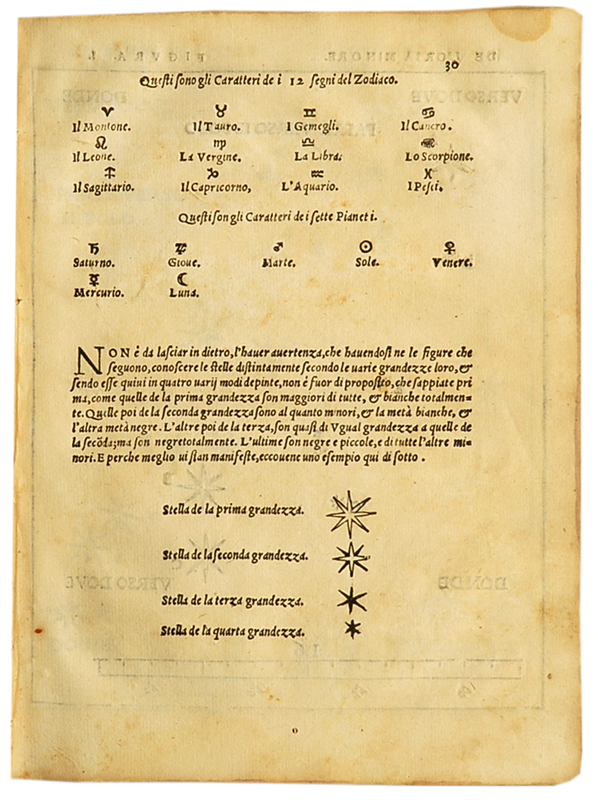 30
Questi sono gli Caratteri de i 12 segni del Zodiaco.
♈ ♉ ♊ ♋
Il Montone. Il Tauro. I Gemegli. Il Cancro.
♌ ♍ ♎ ♏
Il Leone. La Vergine. La Libra. Lo Scorpione.
♐ ♑ ♒ ♓
Il Sagittario. Il Capricorno, L'Aquario. I Pesci.
Questi son gli Caratteri de i sette Pianeti.
♄ ♃ ♂ ☉ ♀
Saturno. Gioue. Marte. Sole. Venere.
☿ ☾
Mercurio. Luna.
NON è da lasciar in dietro, l'hauer auertenza, che hauendosi ne le figure che
seguono, conoscere le stelle distintamente secondo le uarie grandezze loro, &
sendo esse quiui in quatro uarij modi depinte, non è fuor di proposito, che sappiate pri
ma, come quelle de la prima grandezza son maggiori di tutte, & bianche totalmen-
te. Quelle poi de la seconda grandezza sono al quanto minori, & la metà bianche, &
l'altra metà negre. L'altre poi de la terza, son quasi di Vgual grandezza a quelle de
la secõda; ma son negre totalmente. L'ultime son negre e piccole, e di tutte l'altre mi-
nori. E perche meglio ui sian manifeste, eccouene uno esempio qui di sotto.
Stella de la prima grandezza.
Stella de la seconda grandezza.
Stella de la terza grandezza.
Stella de la quarta grandezza.